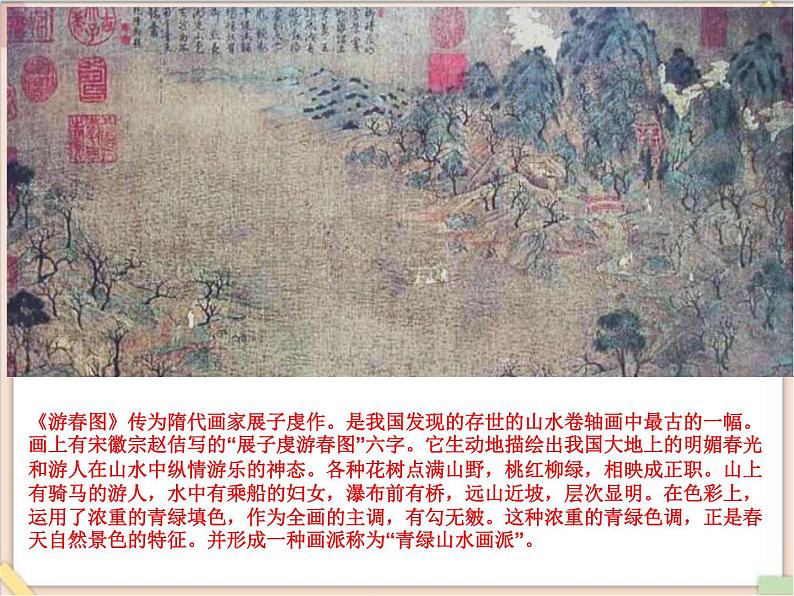 《游春图》传为隋代画家展子虔作。是我国发现的存世的山水卷轴画中最古的一幅。
画上有宋徽宗赵佶写的“展子虔游春图”六字。它生动地描绘出我国大地上的明媚春光
和游人在山水中纵情游乐的神态。各种花树点满山野，桃红柳绿，相映成正职。山上
有骑马的游人，水中有乘船的妇女，瀑布前有桥，远山近坡，层次显明。在色彩上，
运用了浓重的青绿填色，作为全画的主调，有勾无皴。这种浓重的青绿色调，正是春
天自然景色的特征。并形成一种画派称为“青绿山水画派”。